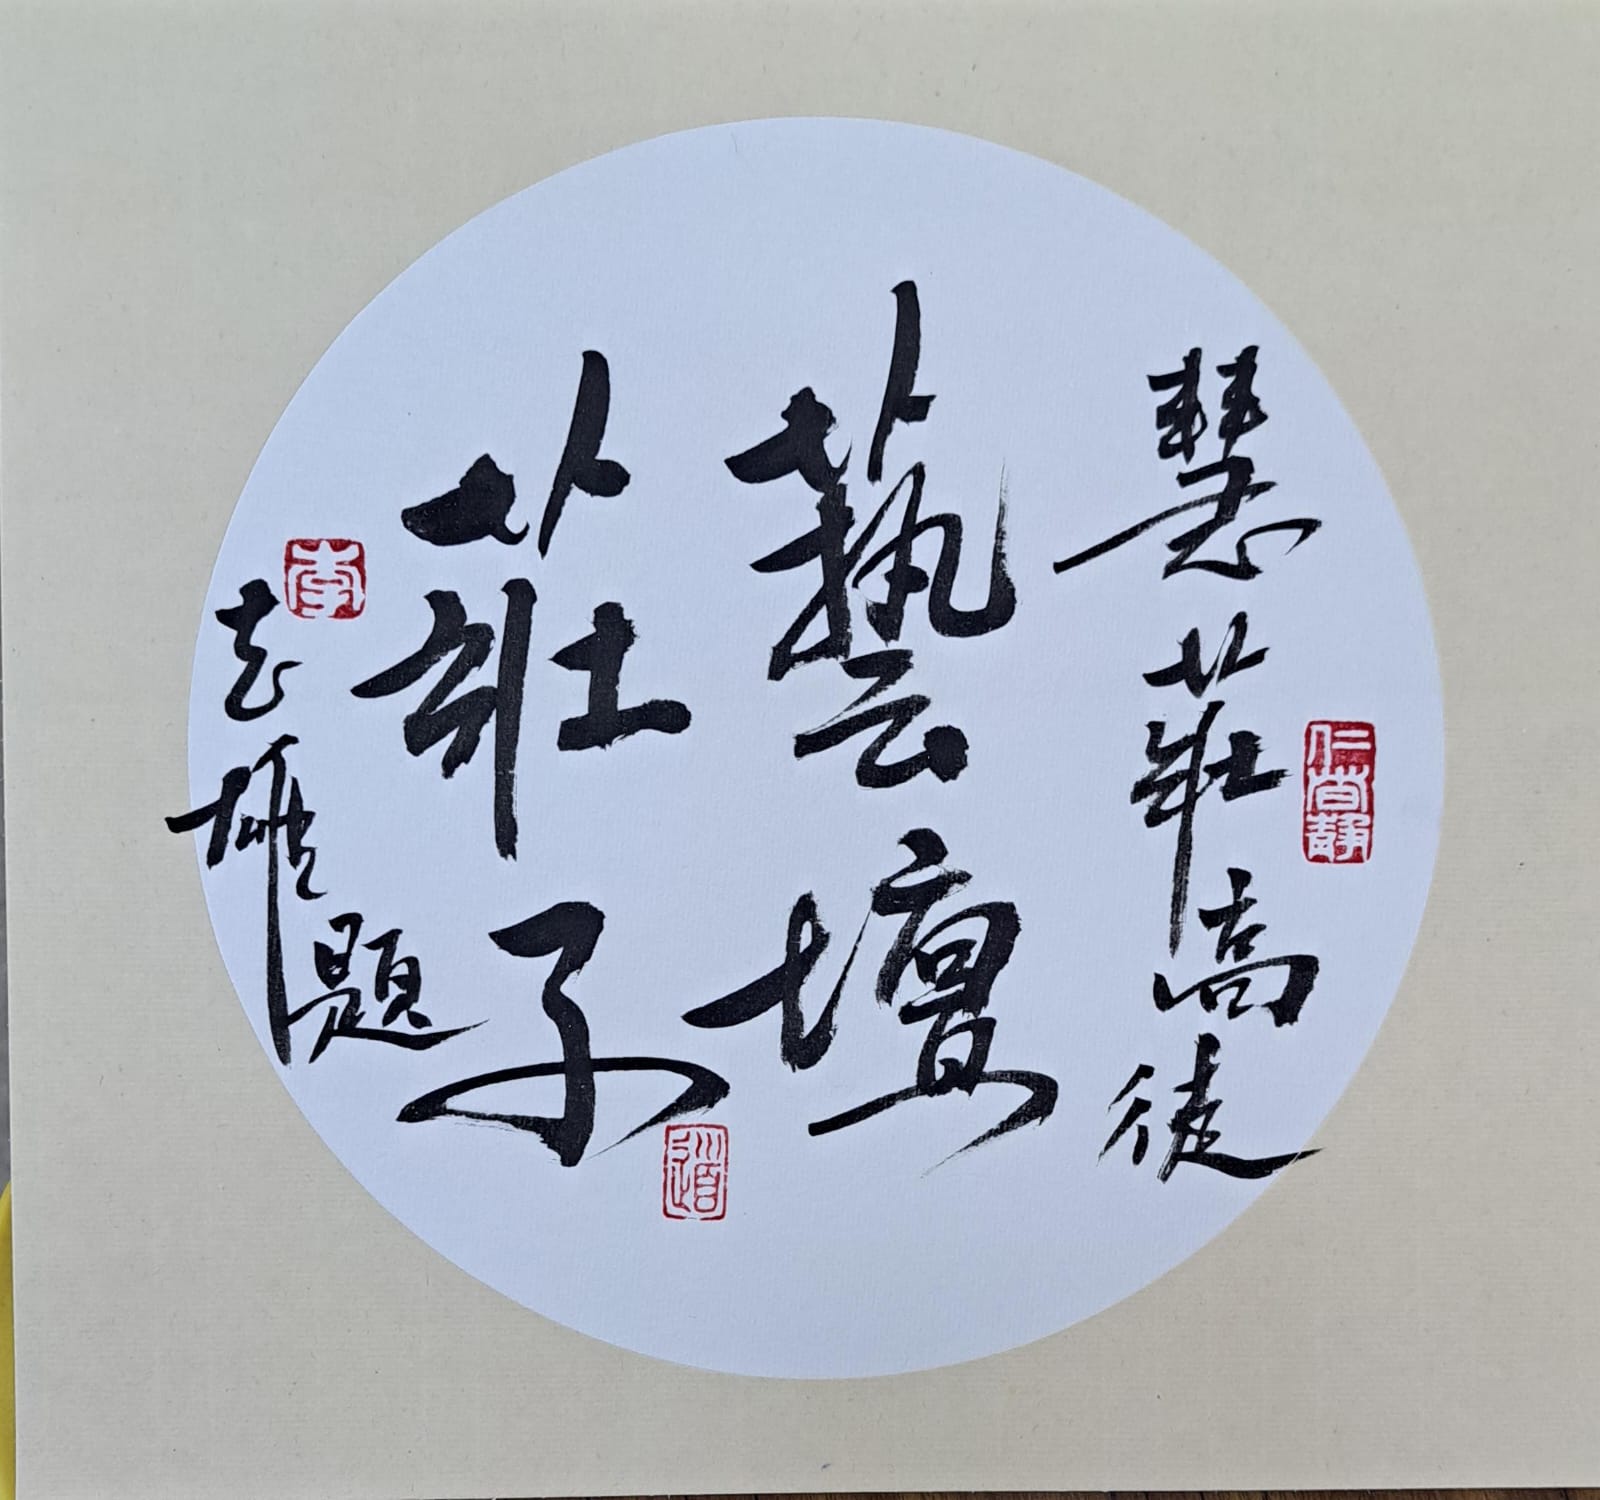 慧莊高徒
藝壇
莊子
志雄題
仁者靜
李